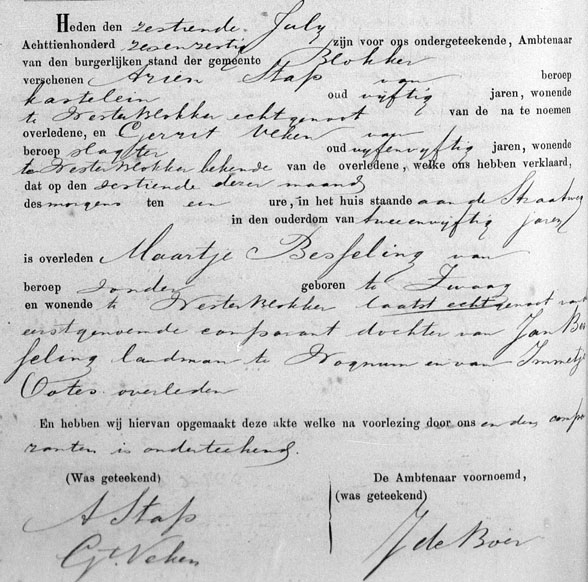 Heden den zestiende July
Achttienhonderd zesenzestig zijn voor ons ondergeteekende, Ambtenaar
van den burgerlijken stand der gemeente Blokker
verschenen Arien Stap van beroep
kastelein oud vijftig jaren, wonende
te Westerblokker echtgenoot van de na te noemen
overledene, en Gerrit Veken van
beroep slagter oud vijfenvijftig jaren, wonende
te Westerblokker bekende van de overledene, welke ons hebben verklaard,
dat op den zestiende dezer maand
des morgens ten een ure, in het huis staande aan de Straatweg
in den ouderdom van tweeenvijftig jaren
is overleden Maartje Besseling van
beroep zonder geboren te Zwaag
en wonende te Westerblokker laatst echtgenoot van
eerstgenoemde comparant dochter van Jan Bes
seling landman te Wognum en van Immetje
Ootes overleden
En hebben wij hiervan opgemaakt deze akte welke na voorlezing door ons en den compa
ranten is onderteekend.
(Was geteekend)
A Stap
Gt. Veken
De Ambtenaar voornoemd,
(was geteekend)
J de Boer